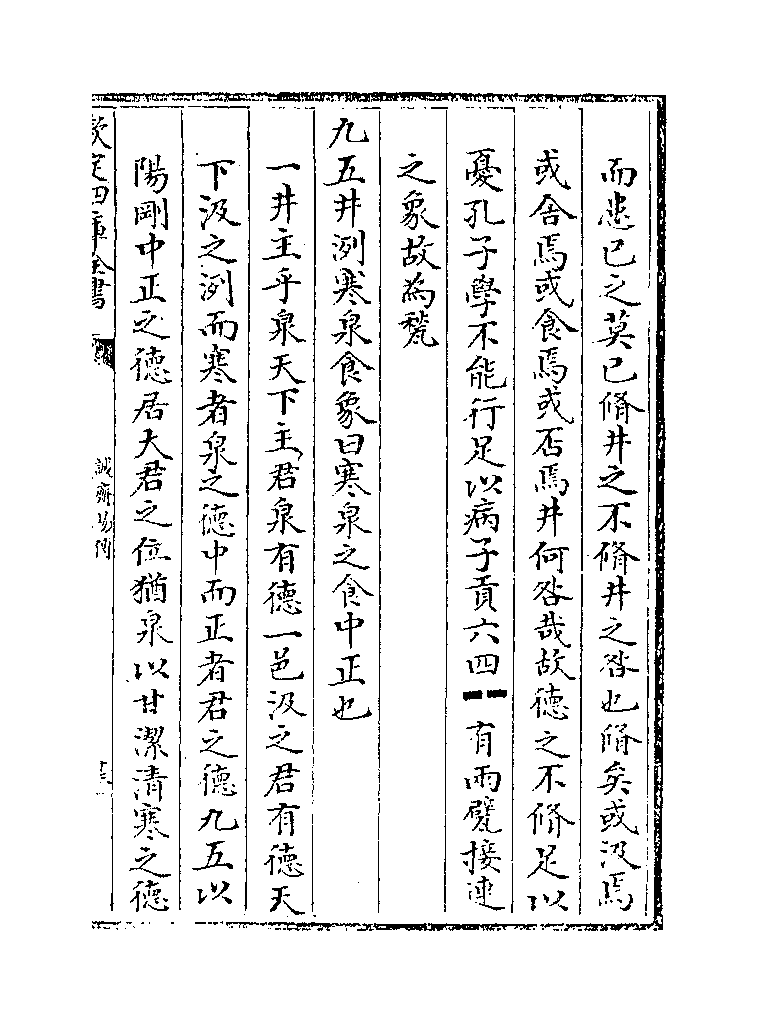 而患已之莫已脩井之不脩井之咎也脩矣或汲焉
或舍焉或食焉或否焉井何咎哉故德之不脩足以
憂孔子學不能行足以病子貢六四⚋有兩甓接連
之象故為甃
九五井洌寒泉食象曰寒泉之食中正也
一井主乎泉天下主君泉有德一邑汲之君有德天
下汲之洌而寒者泉之德中而正者君之德九五以
陽剛中正之德居大君之位猶泉以甘潔清寒之德
欽定四庫全書
誠齋易傳